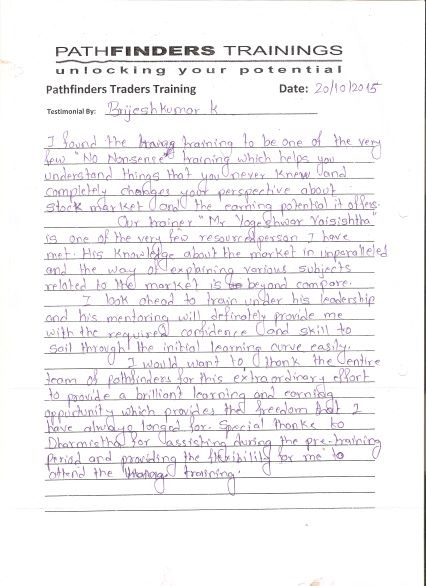 PATHFINDERS TRAININGS
unlocking your potential
Pathfinders Traders Training Date: 20/10/2015
Testimonial By: Brijeshkumar K
I found the training to be one of the very
few "No Nonsense" training which helps you
understand things that you never knew and
completely changes your perspective about
stock market and the earning potential it offers.
Our trainer "Mr Yogeshwar Vasishtha"
is one of the very few resourced person I have
met. His knowledge about the market in unparalleled
and the way of explaining various subjects
related to the market is beyond compare.
I look ahead to train under his leadership
and his mentoring will definately provide me
with the required confidence and skill to
sail through the initial learning curve easily.
I would want to thank the entire
team of pathfinders for this extraordinary effort
to provide a brilliant learning and earning
opportunity which provides the freedom that I
have always longed for. Special thanks to
Dharmistha for assisting during the pre-training
period and providing the flexibility for me to
attend the training.